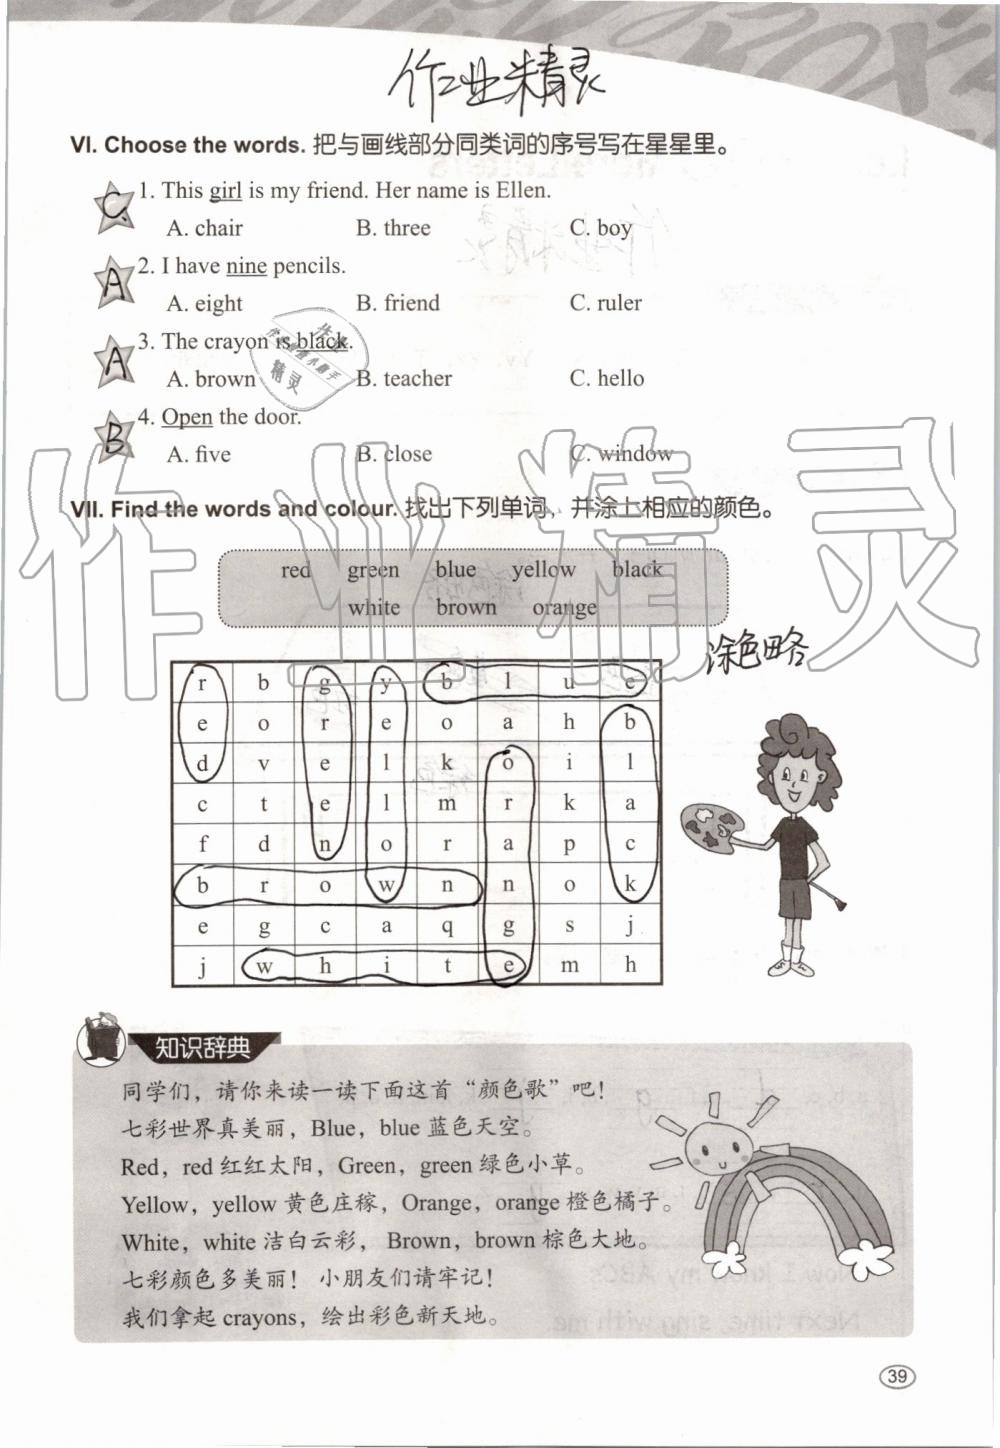 作业精灵
VI. Choose the words. 把与画线部分同类词的序号写在星星里。
C 1. This girl is my friend. Her name is Ellen.
A. chair B. three C. boy
A 2. I have nine pencils.
A. eight B. friend C. ruler
A 3. The crayon is black.
A. brown B. teacher C. hello
B 4. Open the door.
A. five B. close C. window
VII. Find the words and colour. 找出下列单词，并涂上相应的颜色。
red green blue yellow black
white brown orange
涂色略
r b g y b l u e
e o r e o a h b
d v e l k o i l
c t e l m r k a
f d n o r a p c
b r o w n n o k
e g c a q g s j
j w h i t e m h
知识辞典
同学们，请你来读一读下面这首“颜色歌”吧！
七彩世界真美丽，Blue，blue 蓝色天空。
Red，red 红红太阳，Green，green 绿色小草。
Yellow，yellow 黄色庄稼，Orange，orange 橙色橘子。
White，white 洁白云彩， Brown，brown 棕色大地。
七彩颜色多美丽！ 小朋友们请牢记！
我们拿起 crayons，绘出彩色新天地。
39
作业精灵